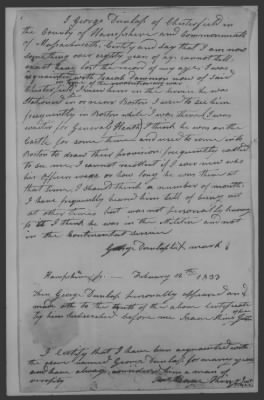 I George Dunlap of Chesterfield in
the County of Hampshire and Commonwealth
of Massachusetts Certify and say that I am now
something over eighty years of age cannot tell
exact have lost the record of my age. I was
acquainted with Isaiah Dammon now of said
in time of the revolutionary war
Chesterfield I knew him in the time he was
stationed in or near Boston I used to see him
frequently in Boston while I was there, I was
waiter for General Heath, I think he was on the
Castle for some time and used to come into
Boston to draw their provision frequently called
to see me I cannot recollect if I ever knew who
his officers were or how long he was then at
that time, I should think a number of months.
I have frequently heard him tell of being out
at other times but was not personally knowing
to it I think he was in the Militia and not
in the Continental service
George Dunlap his mark
Hampshire ss. February 12th 1833
Then George Dunlap personally appeared and
made oath to the truth of the above certificate
by him subscribed before me
I certify that I have been acquainted with
the above named George Dunlap for many years
and have always considered him a man of
veracity